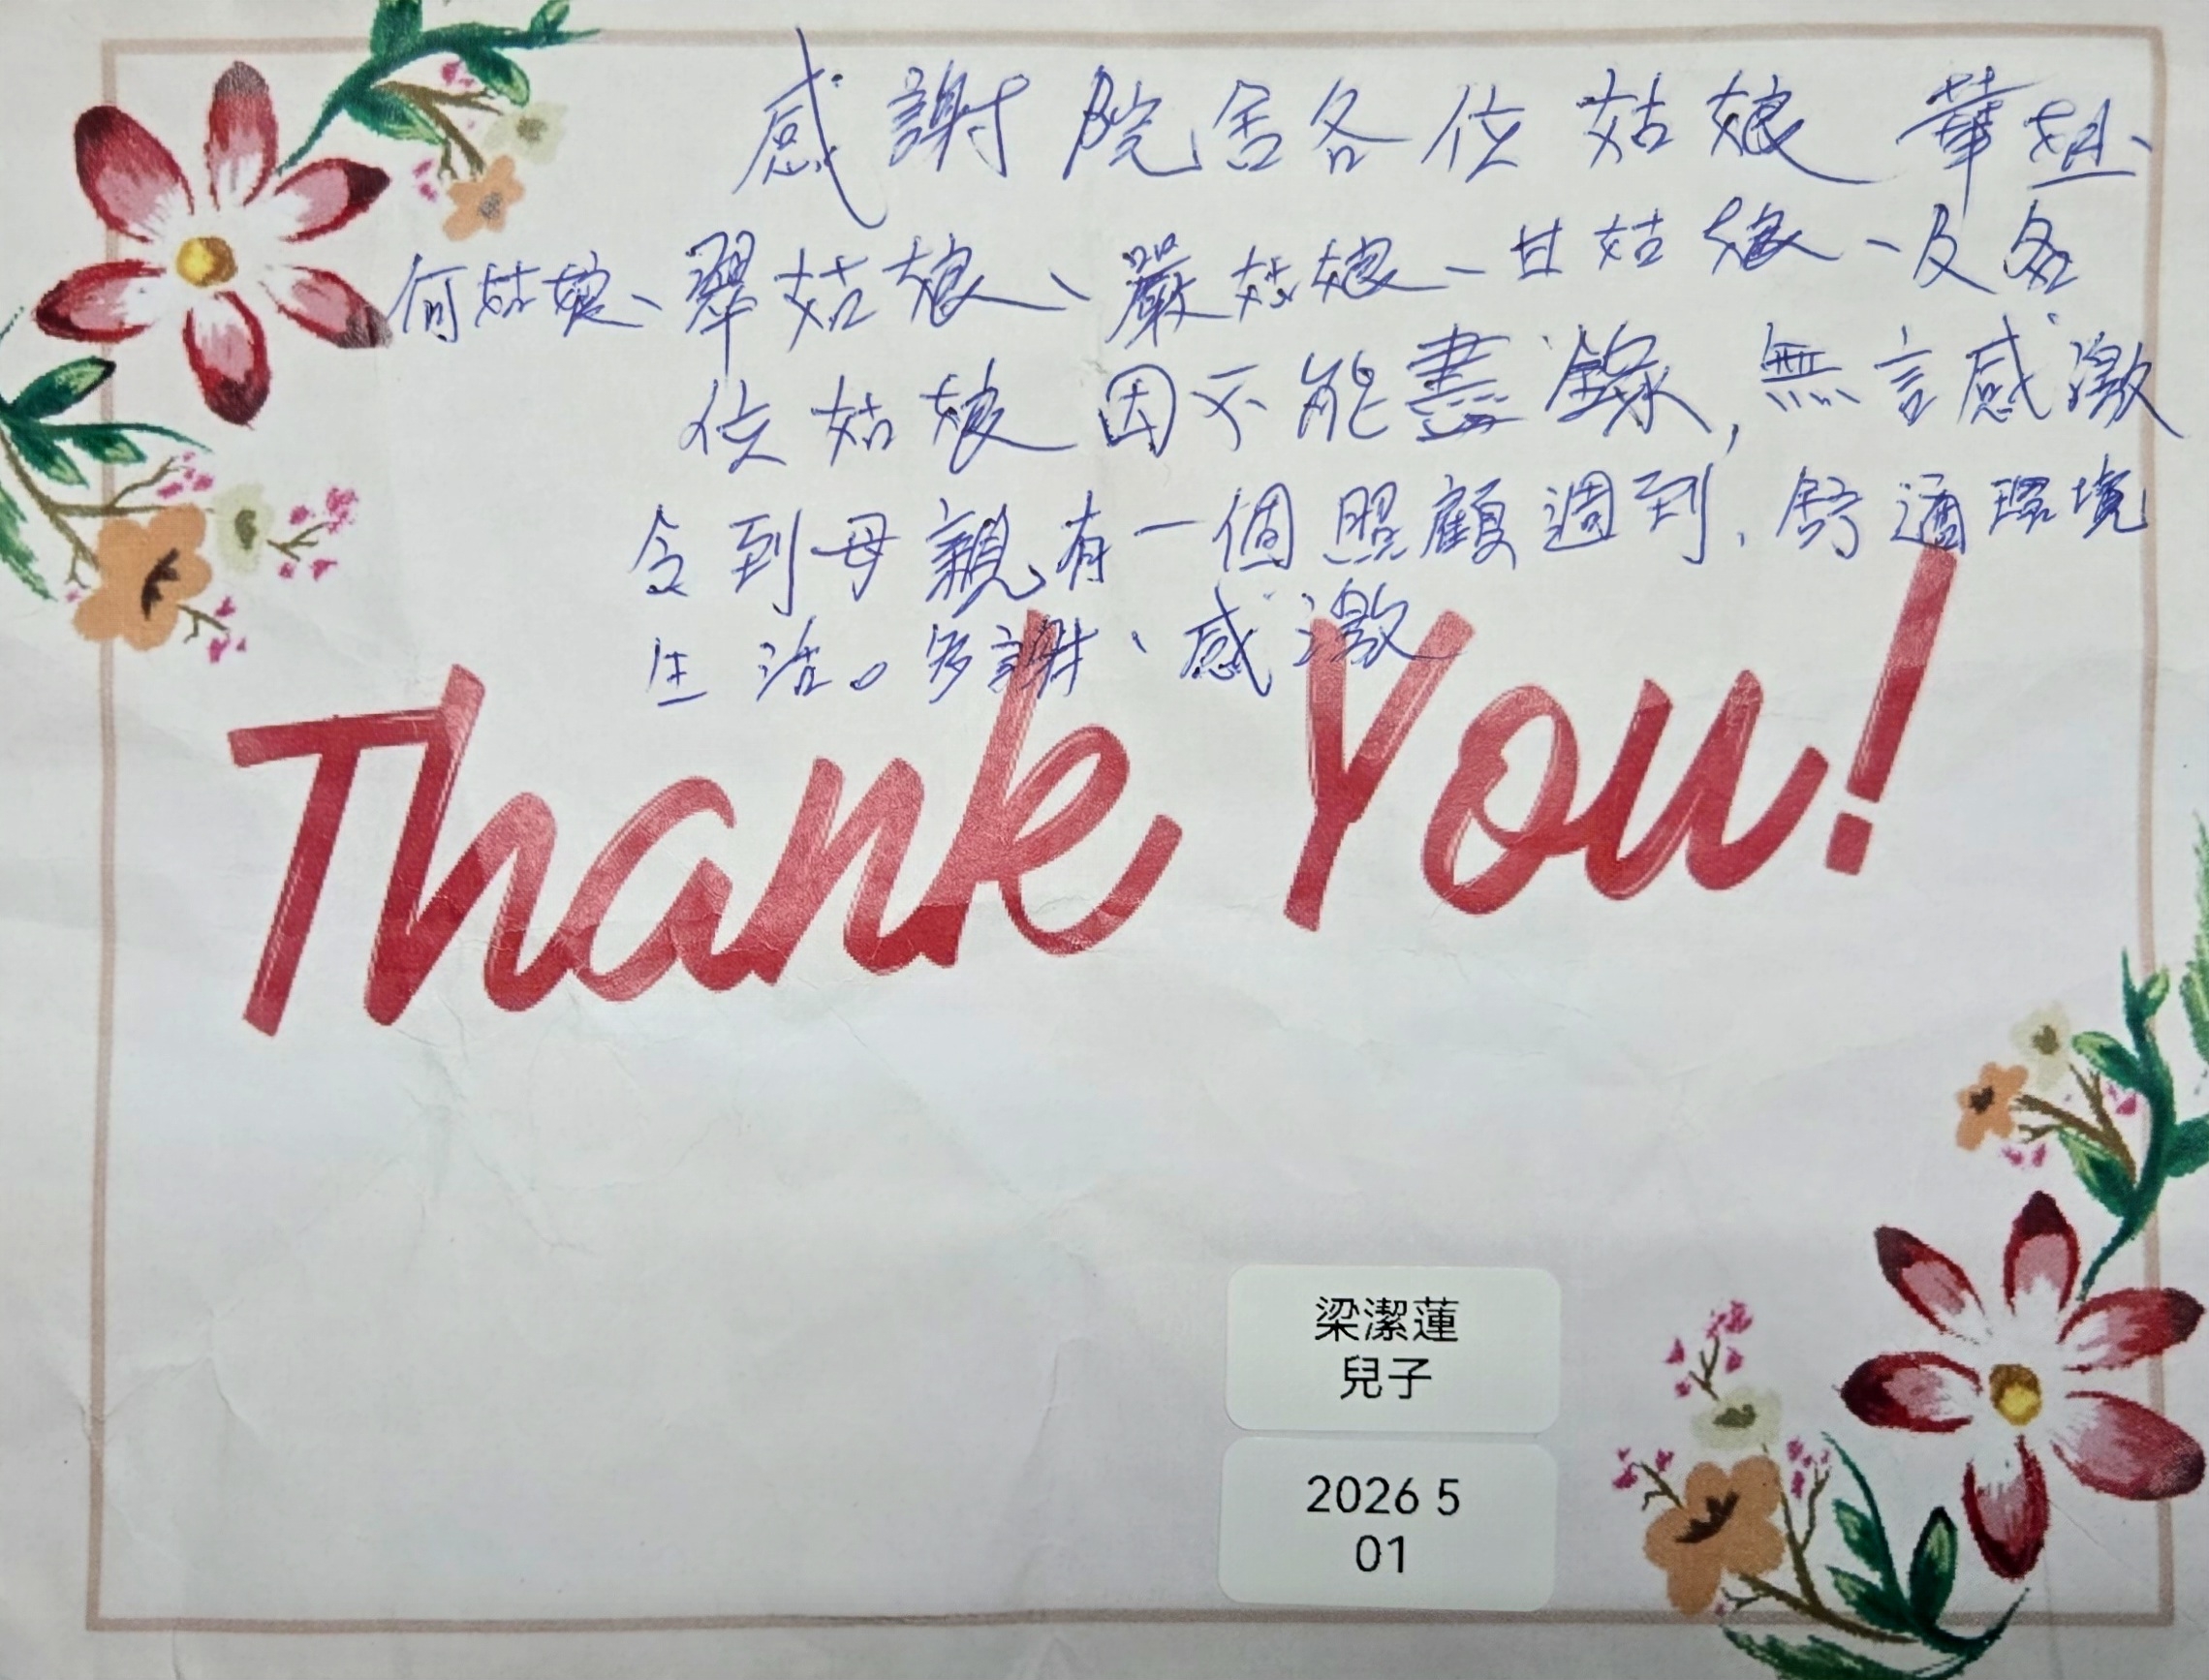 感謝院舍各位姑娘 華姐、
何姑娘、翠姑娘、嚴姑娘、甘姑娘、及各
位姑娘因不能盡錄,無言感激
令到母親有一個照顧週到、舒適環境
生活。多謝、感激
Thank You!
梁潔蓮
兒子
2026 5
01